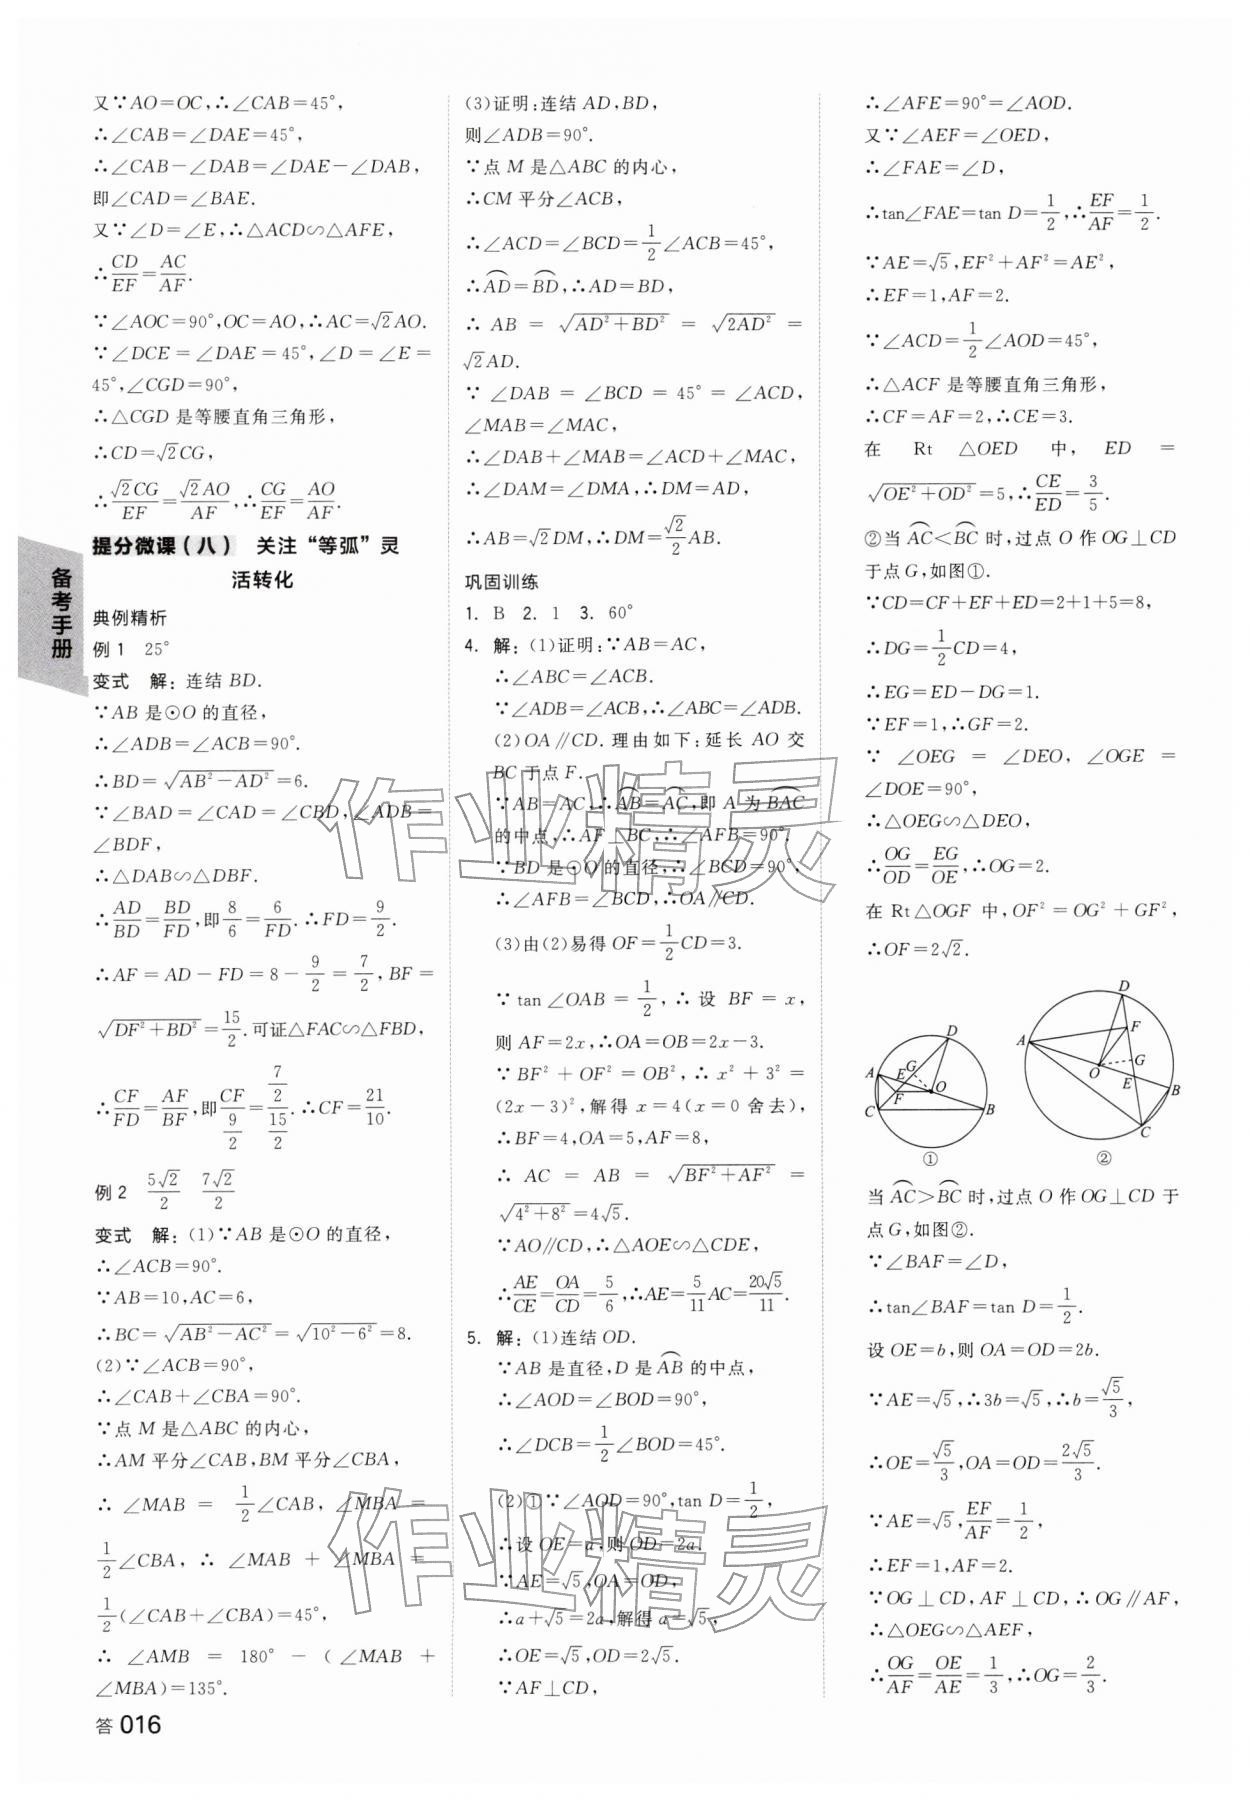 又∵AO=OC,∴∠CAB=45°,
∴∠CAB=∠DAE=45°,
∴∠CAB-∠DAB=∠DAE-∠DAB,
即∠CAD=∠BAE.
又∵∠D=∠E,∴△ACD∽△AFE,
∴CD/EF=AC/AF.
∵∠AOC=90°,OC=AO,∴AC=√2AO.
∵∠DCE=∠DAE=45°,∠D=∠E=
45°,∠CGD=90°,
∴△CGD是等腰直角三角形,
∴CD=√2CG,
∴√2CG/EF=√2AO/AF,∴CG/EF=AO/AF.
提分微课(八) 关注“等弧”灵
活转化
典例精析
例1 25°
变式 解:连结BD.
∵AB是⊙O的直径,
∴∠ADB=∠ACB=90°.
∴BD=√(AB²-AD²)=6.
∵∠BAD=∠CAD=∠CBD,∠ADB=
∠BDF,
∴△DAB∽△DBF.
∴AD/BD=BD/FD,即8/6=6/FD.∴FD=9/2.
∴AF=AD-FD=8-9/2=7/2,BF=
√(DF²+BD²)=15/2.可证△FAC∽△FBD,
∴CF/FD=AF/BF,即CF/(9/2)=(7/2)/(15/2).∴CF=21/10.
例2 5√2/2 7√2/2
变式 解:(1)∵AB是⊙O的直径,
∴∠ACB=90°.
∵AB=10,AC=6,
∴BC=√(AB²-AC²)=√(10²-6²)=8.
(2)∵∠ACB=90°,
∴∠CAB+∠CBA=90°.
∵点M是△ABC的内心,
∴AM平分∠CAB,BM平分∠CBA,
∴∠MAB=1/2∠CAB,∠MBA=
1/2∠CBA,∴∠MAB+∠MBA=
1/2(∠CAB+∠CBA)=45°,
∴∠AMB=180°-(∠MAB+
∠MBA)=135°.
(3)证明:连结AD,BD,
则∠ADB=90°.
∵点M是△ABC的内心,
∴CM平分∠ACB,
∴∠ACD=∠BCD=1/2∠ACB=45°,
∴⌒AD=⌒BD,∴AD=BD,
∴AB=√(AD²+BD²)=√(2AD²)=
√2AD.
∵∠DAB=∠BCD=45°=∠ACD,
∠MAB=∠MAC,
∴∠DAB+∠MAB=∠ACD+∠MAC,
∴∠DAM=∠DMA,∴DM=AD,
∴AB=√2DM,∴DM=√2/2AB.
巩固训练
1. B 2. 1 3. 60°
4. 解:(1)证明:∵AB=AC,
∴∠ABC=∠ACB.
∵∠ADB=∠ACB,∴∠ABC=∠ADB.
(2)OA∥CD.理由如下:延长AO交
BC于点F.
∵AB=AC,∴⌒AB=⌒AC,即A为⌒BAC
的中点,∴AF⊥BC,∴∠AFB=90°.
∵BD是⊙O的直径,∴∠BCD=90°,
∴∠AFB=∠BCD,∴OA∥CD.
(3)由(2)易得OF=1/2CD=3.
∵tan∠OAB=1/2,∴设BF=x,
则AF=2x,∴OA=OB=2x-3.
∵BF²+OF²=OB²,∴x²+3²=
(2x-3)²,解得x=4(x=0舍去),
∴BF=4,OA=5,AF=8,
∴AC=AB=√(BF²+AF²)=
√(4²+8²)=4√5.
∵AO∥CD,∴△AOE∽△CDE,
∴AE/CE=OA/CD=5/6,∴AE=5/11AC=20√5/11.
5. 解:(1)连结OD.
∵AB是直径,D是⌒AB的中点,
∴∠AOD=∠BOD=90°,
∴∠DCB=1/2∠BOD=45°.
(2)①∵∠AOD=90°,tan D=1/2,
∴设OE=a,则OD=2a.
∵AE=√5,OA=OD,
∴a+√5=2a,解得a=√5,
∴OE=√5,OD=2√5.
∵AF⊥CD,
∴∠AFE=90°=∠AOD.
又∵∠AEF=∠OED,
∴∠FAE=∠D,
∴tan∠FAE=tan D=1/2,∴EF/AF=1/2.
∵AE=√5,EF²+AF²=AE²,
∴EF=1,AF=2.
∵∠ACD=1/2∠AOD=45°,
∴△ACF是等腰直角三角形,
∴CF=AF=2,∴CE=3.
在Rt△OED中,ED=
√(OE²+OD²)=5,∴CE/ED=3/5.
②当⌒AC<⌒BC时,过点O作OG⊥CD
于点G,如图①.
∵CD=CF+EF+ED=2+1+5=8,
∴DG=1/2CD=4,
∴EG=ED-DG=1.
∵EF=1,∴GF=2.
∵∠OEG=∠DEO,∠OGE=
∠DOE=90°,
∴△OEG∽△DEO,
∴OG/OD=EG/OE,∴OG=2.
在Rt△OGF中,OF²=OG²+GF²,
∴OF=2√2.
D
A
E
G
F
O
C
B
①
D
A
F
O
G
E
B
C
②
当⌒AC>⌒BC时,过点O作OG⊥CD于
点G,如图②.
∵∠BAF=∠D,
∴tan∠BAF=tan D=1/2.
设OE=b,则OA=OD=2b.
∵AE=√5,∴3b=√5,∴b=√5/3,
∴OE=√5/3,OA=OD=2√5/3.
∵AE=√5,EF/AF=1/2,
∴EF=1,AF=2.
∵OG⊥CD,AF⊥CD,∴OG∥AF,
∴△OEG∽△AEF,
∴OG/AF=OE/AE=1/3,∴OG=2/3.
备考手册
答016
作业精灵
作业精灵